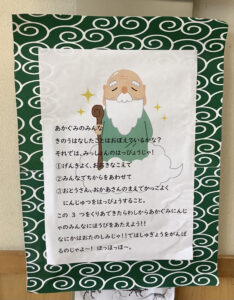 あかぐみのみんな
きのうはなしたことはおぼえているかな？
それでは、みっしょんのはっぴょうじゃ！
①げんきよく、おおきなこえで
②みんなでちからをあわせて
③おとうさん、おかあさんのまえでかっこよく
にんじゅつをはっぴょうすること。
この 3 つをクリアできたらわしからあかぐみにんじ
ゃのみんなにほうびをあたえよう！！
なにかはおたのしみじゃ！！ではしゅぎょうをがんば
るのじゃよ〜！ほっほっほ〜。